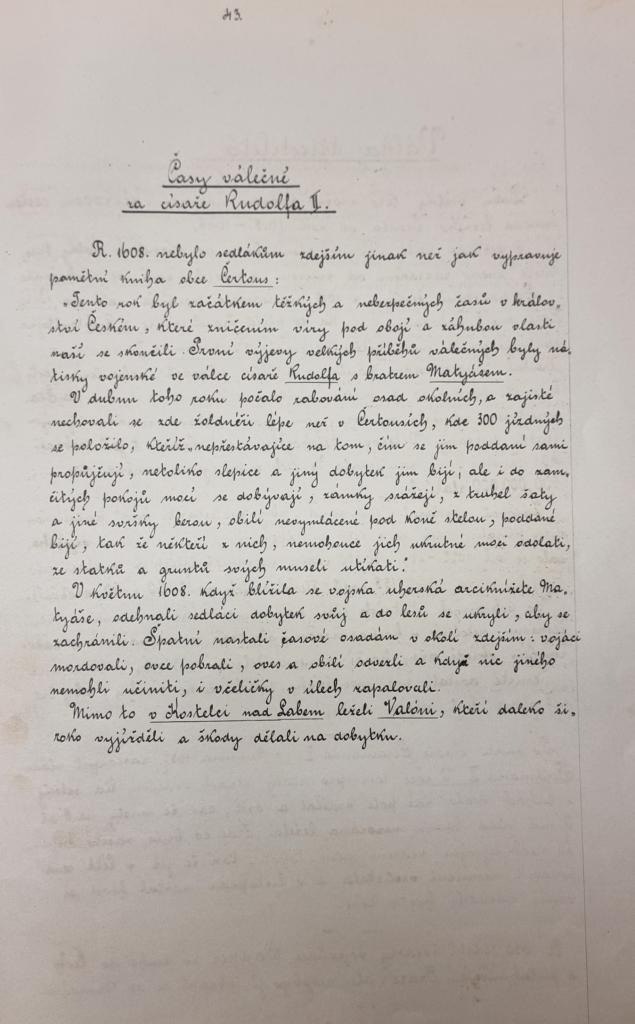 43.
Časy válečné
za císaře Rudolfa II.
R. 1608. nebylo sedlákům zdejším jinak než jak vypravuje
pamětní kniha obce Čertous:
„Tento rok byl začátkem těžkých a nebezpečných časů v králov-
ství Českém, které zničením víry pod obojí a záhubou vlasti
naší se skončili. První výjevy velkých příběhů válečných byly ná-
tisky vojenské ve válce císaře Rudolfa s bratrem Matyášem.
V dubnu toho roku počalo rabování osad okolních, a zajisté
nechovali se zde žoldnéři lépe než v Čertousích, kde 300 jízdných
se položilo, kteříž „nepřestávajíce na tom, čím se jim poddaní sami
propůjčují, netoliko slepice a jiný dobytek jim bijí, ale i do zam-
čitých pokojů mocí se dobývají, zámky srážejí, z truhel šaty
a jiné svršky berou, obilí nevymlácené pod koně stelou, poddané
bijí, tak že někteří z nich, nemohouce jich ukrutné moci odolati,
ze statků a gruntů svých museli utíkati."
V květnu 1608. když blížila se vojska uherská arciknížete Ma-
tyáše, odehnali sedláci dobytek svůj a do lesů se ukryli, aby se
zachránili. Špatní nastali časové osadám v okolí zdejším: vojáci
mordovali, ovce pobrali, oves a obilí odvezli a když nic jiného
nemohli učiniti, i včeličky v úlech zapalovali.
Mimo to v Kostelci nad Labem leželi Valóni, kteří daleko ši-
roko vyjížděli a škody dělali na dobytku.